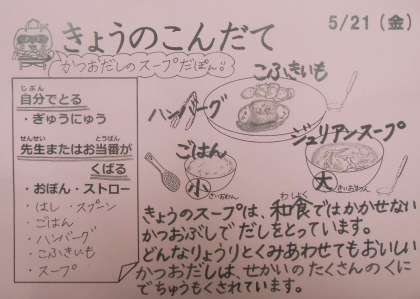 きょうのこんだて
5/21(金)
かつおだしのスープだぽん!!
じぶん
自分でとる
・ぎゅうにゅう
せんせい とうばん
先生またはお当番が
くばる
・おぼん・ストロー
・はし・スプーン
・ごはん
・ハンバーグ
・こふきいも
・スープ
こふきいも
ハンバーグ
ジュリアンスープ
ごはん
小
大
わしょく
きょうのスープは、和食ではかかせない
かつおぶしでだしをとっています。
どんなりょうりとくみあわせてもおいしい
かつおだしは、せかいのたくさんのくに
でちゅうもくされています。